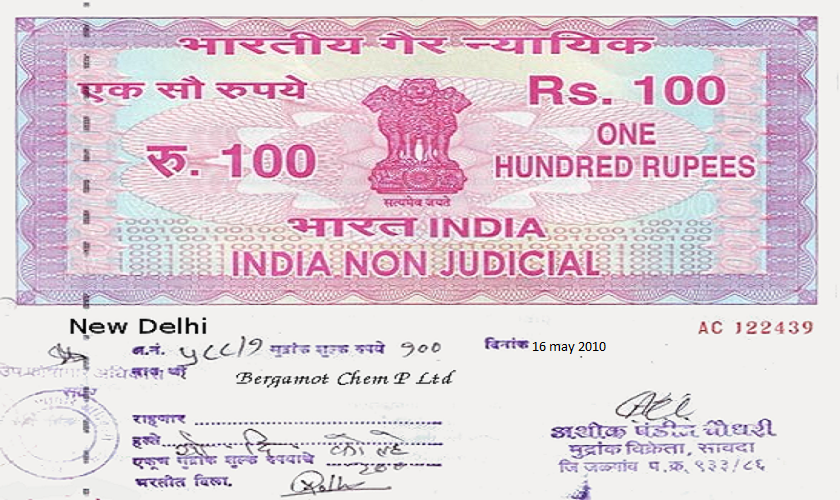 भारतीय गैर न्यायिक
एक सौ रुपये
Rs. 100
रु. 100
ONE
HUNDRED RUPEES
सत्यमेव जयते
भारत INDIA
INDIA NON JUDICIAL
New Delhi
AC 122439
अ.नं. मुद्रांक शुल्क रुपये १०० दिनांक 16 may 2010
नाव श्री
Bergamot Chem P Ltd
राहणार
हस्ते
एकूण मुद्रांक शुल्क रुपयाचे
अशोक पंडीत चौधरी
मुद्रांक विक्रेता, सावदा
जि जळगांव प.क्र. ९३३/८६